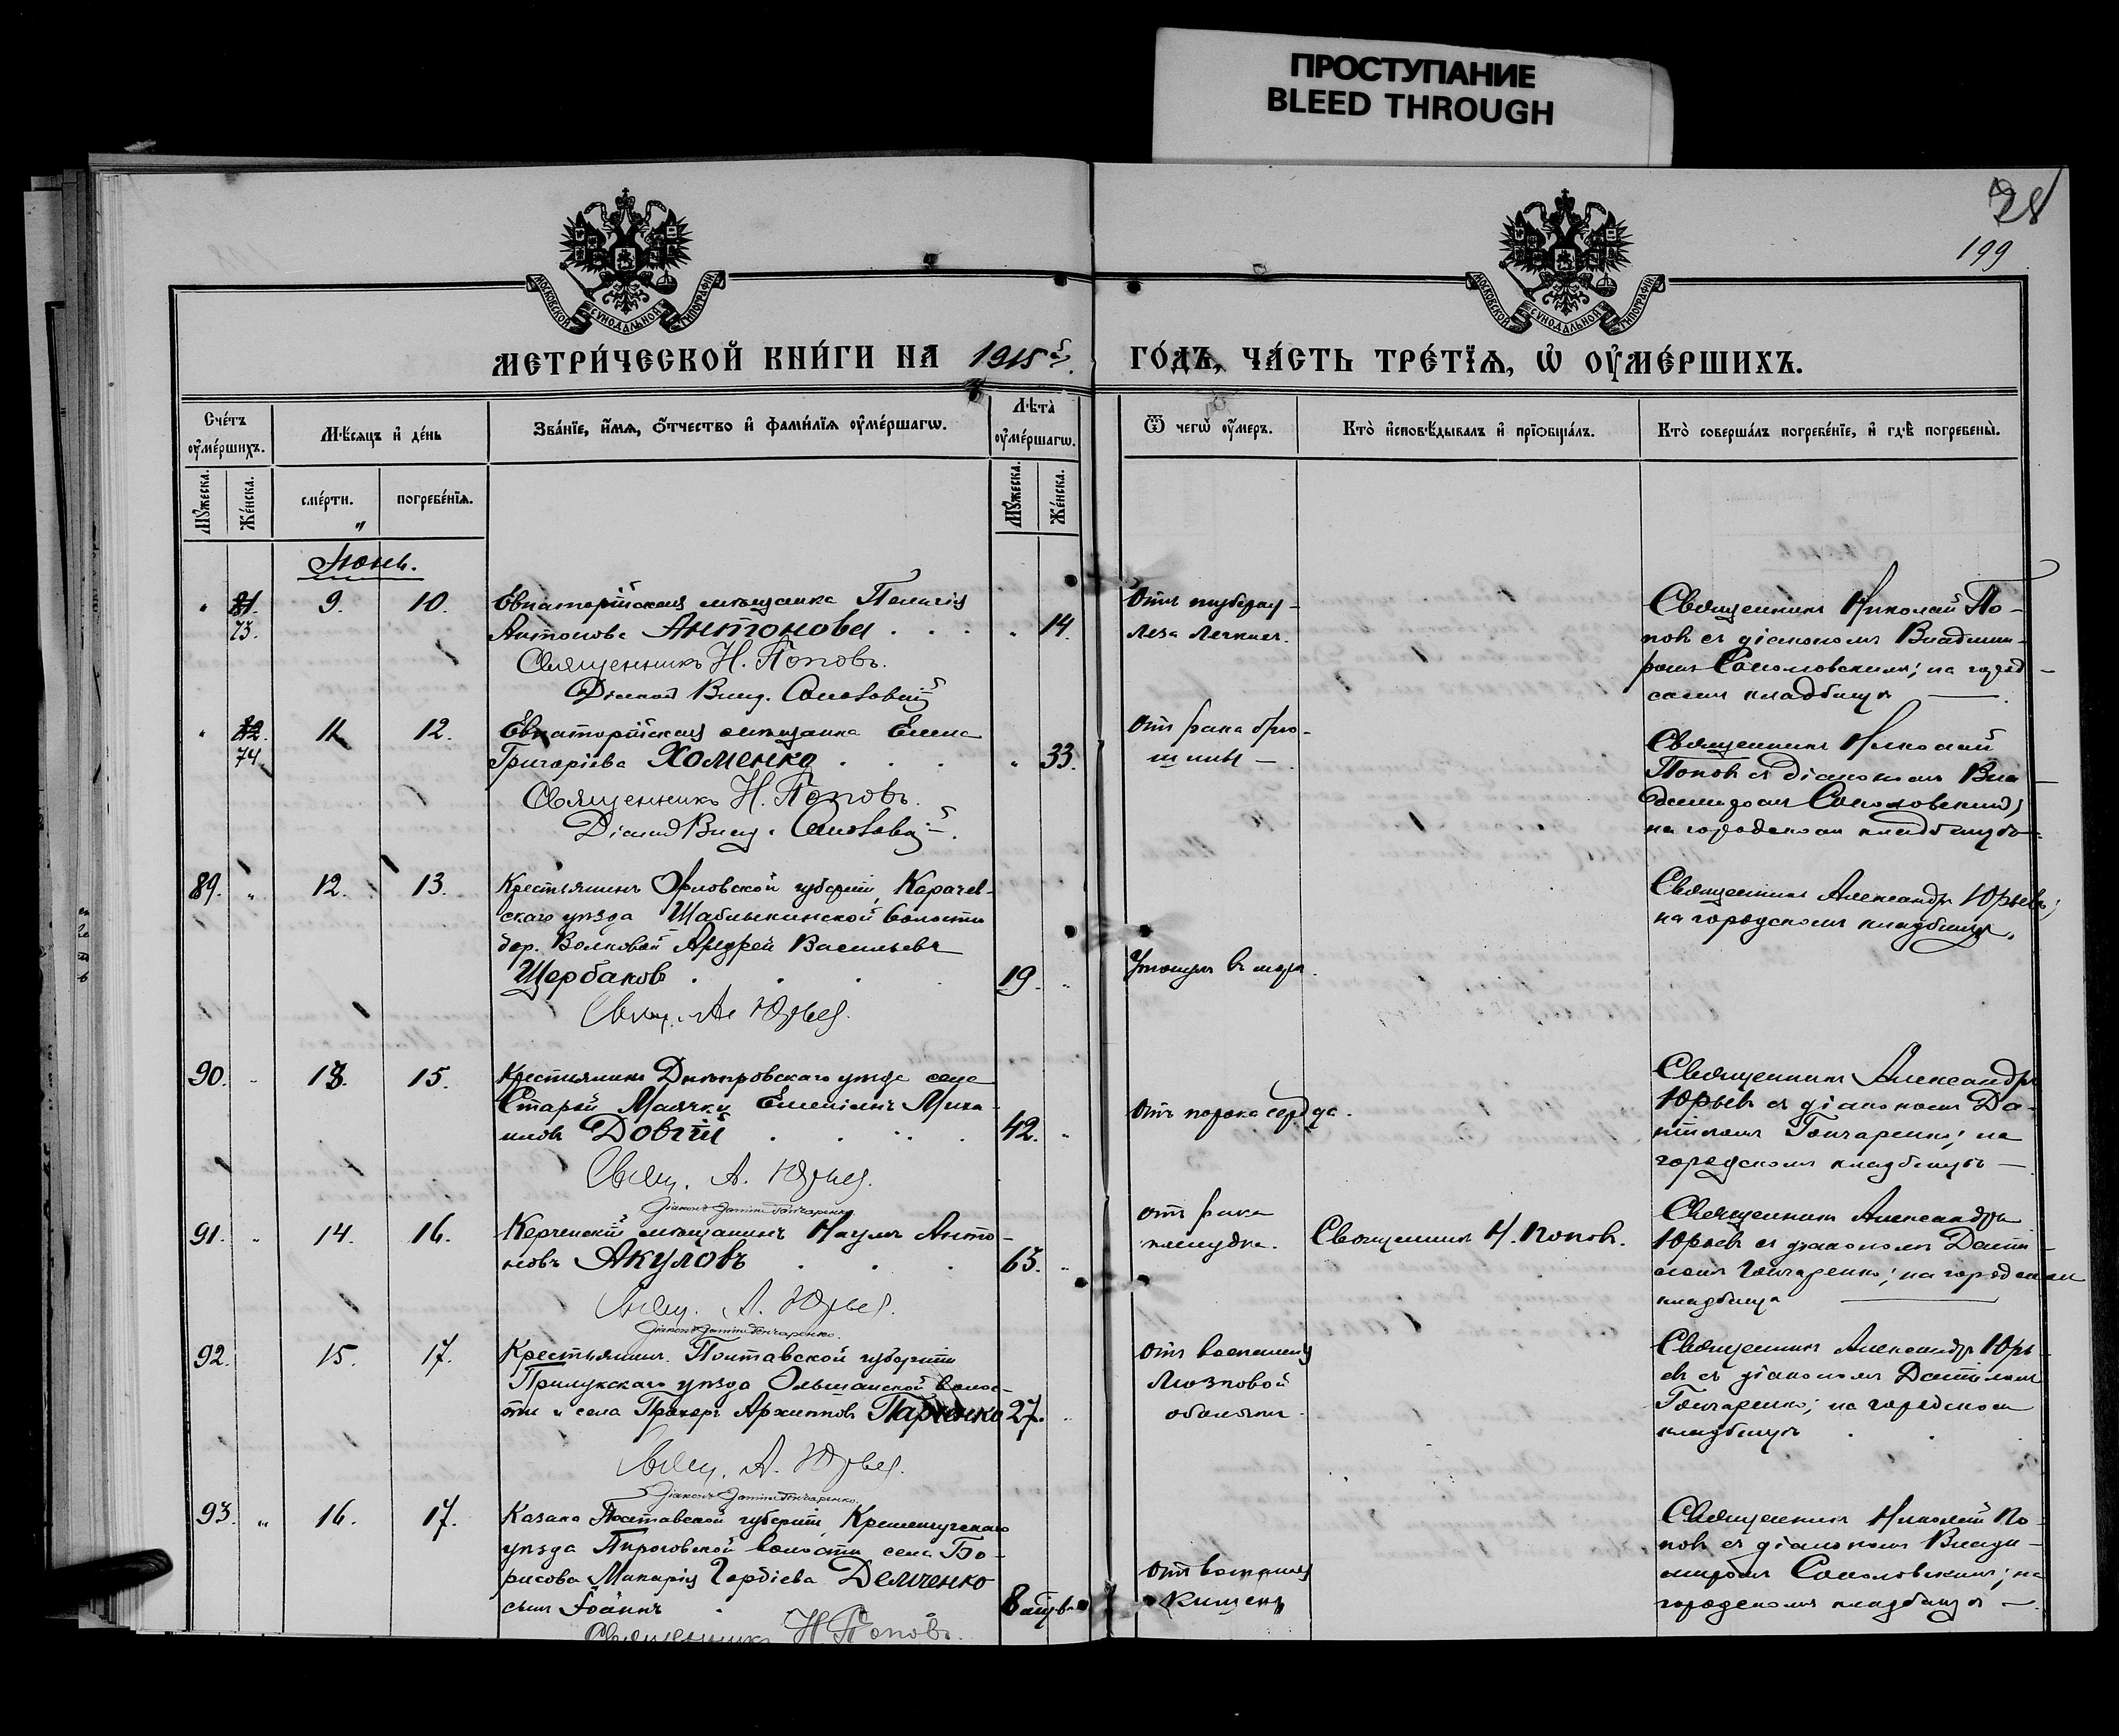 ПРОСТУПАНИЕ
BLEED THROUGH
28
199
МОСКОВСКОЙ СУНОДАЛЬНОЙ ТИПОГРАФІИ
МОСКОВСКОЙ СУНОДАЛЬНОЙ ТИПОГРАФІИ
МЕТРИ́ЧЕСКОЙ КНИ́ГИ НА 1915й
ГО́ДЪ, ЧА́СТЬ ТРЕ́ТЇѦ, Ѡ҆ ОУ҆МЕ́РШИХЪ.
Сче́тъ оу҆ме́ршихъ.
Мꙋ́жеска.
Же́нска.
Мѣ́сѧцъ и҆ де́нь
сме́рти.
погребе́нїѧ.
Зва́нїе, и҆́мѧ, ѻ҆́тчество и҆ фами́лїѧ оу҆ме́ршагѡ.
Лѣта̀ оу҆ме́ршагѡ.
Мꙋ́жеска.
Же́нска.
Ѿ чегѡ̀ оу҆́меръ.
Кто̀ и҆сповѣ́дывалъ и҆ прїѡбща́лъ.
Кто̀ соверша́лъ погребе́нїе, и҆ гдѣ̀ погребены̀.
Іюнь.
" 81. 73. 9. 10.
Евпаторійская мѣщанка Пелагія
Антонова Антонова . . . " 14.
Священникъ Н. Поповъ.
Діаконъ Влад. Соколовскій
Отъ туберку-
леза легкихъ.
Священникъ Николай По-
повъ съ діакономъ Владими-
ромъ Соколовскимъ; на город-
скомъ кладбищѣ
" 82. 74. 11. 12.
Евпаторійская мѣщанка Елена
Григоріева Хоменко . . . " 33.
Священникъ Н. Поповъ.
Діаконъ Влад. Соколовскій.
Отъ рака брю-
шины
Священникъ Николай
Поповъ съ діакономъ Вла-
димиромъ Соколовскимъ;
на городскомъ кладбищѣ
89. " 12. 13.
Крестьянинъ Орловской губерніи, Карачев-
скаго уѣзда Шаблыкинской волости
дер. Волковой Андрей Васильевъ
Щербаковъ . . . 19. "
Свящ. А. Юрьев.
Утонулъ въ морѣ.
Священникъ Александръ Юрьевъ;
на городскомъ кладбищѣ.
90. " 13. 15.
Крестьянинъ Днѣпровскаго уѣзда села
Старой Маячки Емеліанъ Михаи-
ловъ Довгій . . . 42. "
Свящ. А. Юрьев.
Діаконъ Даніилъ Гончаренко
Отъ порока сердца.
Священникъ Александръ
Юрьевъ съ діакономъ Да-
ніиломъ Гончаренко; на
городскомъ кладбищѣ
91. " 14. 16.
Керченскій мѣщанинъ Наумъ Анто-
новъ Акуловъ . . . 63. "
Свящ. А. Юрьев.
Діаконъ Даніилъ Гончаренко.
Отъ рака
желудка.
Священникъ Н. Поповъ.
Священникъ Александръ
Юрьевъ съ діакономъ Дани-
ломъ Гончаренко; на городскомъ
кладбищѣ
92. 15. 17.
Крестьянинъ Полтавской губерніи
Прилукскаго уѣзда Ольшанской волос-
ти и села Архиповъ 27. "
Свящ. А. Юрьев.
Діаконъ Даніилъ Гончаренко.
Отъ воспаленія
мозговой
оболочки.
Священникъ Александръ Юрь-
евъ съ діакономъ Даніиломъ
Гончаренко; на городскомъ
кладбищѣ . .
93. " 16. 17.
Казака Полтавской губерніи, Кременчугскаго
уѣзда Пироговской волости села Бо-
рисова Макарія Гордіева Демченко
сынъ Іоаннъ . 8 мѣс.
Священникъ Н. Поповъ.
Отъ воспаленія
кишекъ
Священникъ Николай По-
повъ съ діакономъ Влади-
миромъ Соколовскимъ; на
городскомъ кладбищѣ